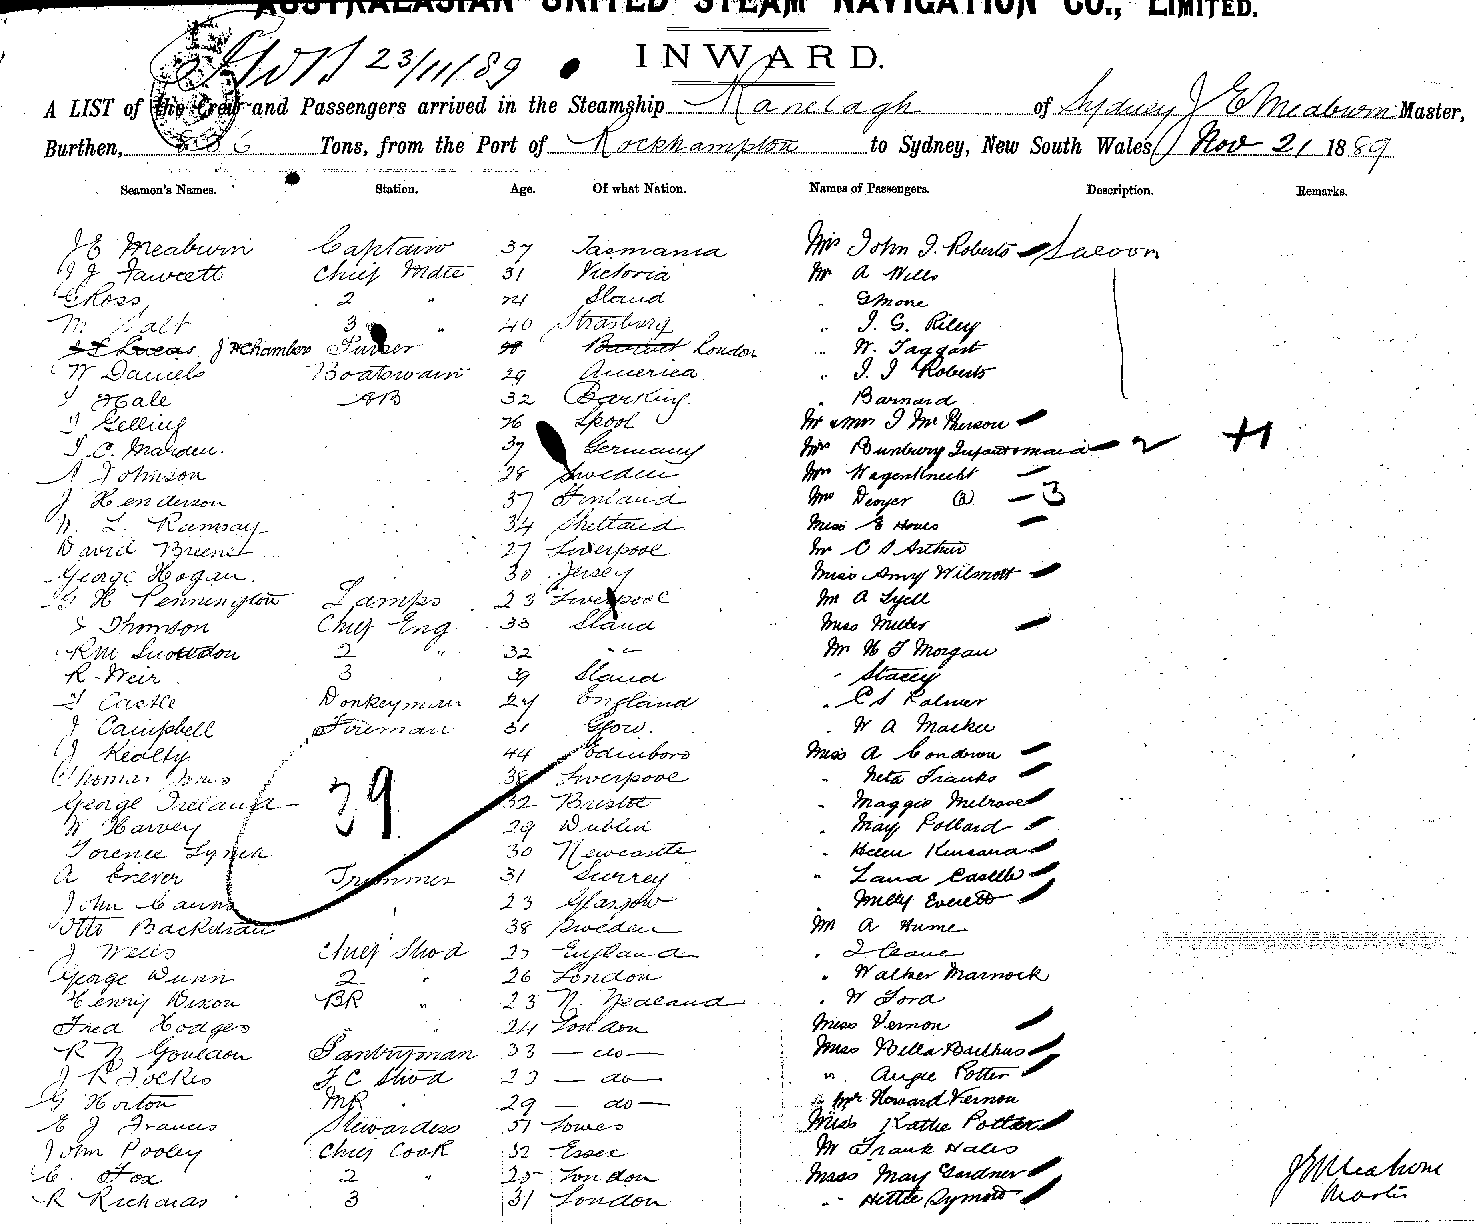 AUSTRALASIAN UNITED STEAM NAVIGATION CO., LIMITED.
INWARD.
23/11/89
A LIST of the Crew and Passengers arrived in the Steamship Ranelagh of Sydney J E Meaburn Master,
Burthen, Tons, from the Port of Rockhampton to Sydney, New South Wales Nov 21 1889
Seamen's Names. Station. Age. Of what Nation. Names of Passengers. Description. Remarks.
J E Meaburn Captain 37 Tasmania Mrs John J. Roberts Saloon
J J Fawcett Chief Mate 31 Victoria Mr A Wills
G Ross 2 " Sland " Gmone
M Salt 3 " 40 Strasburg " J. G. Riley
J H Chambers Purser London " W. Taggart
W Daniels Boatswain 29 America " J. J Roberts
Hale AB 32 Barking " Barnard
Gelling 26 Lpool Mr & Mrs J McPherson
T. C. Marden. 37 Germany Mrs Bunbury Infant & maid 2
A Johnson 28 Sweden Mrs Wagenknecht
J Henderson 37 Finland Mrs Dwyer (2) 3
W. L. Ramsay 34 Shetland Miss E Hows
David Breene 27 Liverpool Mr C S Arthur
George Hogan. 30 Jersey Miss Amy Wilmott
G H Pennington Lamps 23 Liverpool Mr A Lyell
J Thomson Chief Eng 33 Sland Miss Miller
R M Snowdon 2 " 32 " Mr W J Morgan
R Weir 3 39 Sland " Stacey
T Castle Donkeyman 24 England " C S Palmer
J Campbell Fireman 31 Gow. " W A Mackie
J Kealty 44 Edinboro Miss A Condron
Thomas Jones 38 Liverpool " Neta Franks
George Ireland 32 Bristol " Maggie Melrose
W Harvey 29 Dublin " May Pollard
39
Torence Lynch 30 Newcastle " Helen Kinsana
A Enever Trimmer 31 Surrey " Lana Castle
John Cairns 23 Glasgow " Milly Everett
Otto Backman 38 Sweden Mr A Hume
J Wells Chief Stwd 27 England
George Dunn 2 " 26 London " Walker Marnock
Henry Dixon BR " 23 N. Zealand " W Ford
Fred Hodges " 24 London Miss Vernon
R N Gouldon Pantryman 33 do Miss Bella Bathus
J R Fockes F C Stwd 23 do " Angie Potter
G Horton MR " 29 do " Mr Howard Vernon
E J Francis Stewardess 51 Lowes Miss Kathe Potter
John Pooley Chief Cook 32 Essex Mr Frank Hales
C. Fox 2 " 25 London Miss May Gardner
R Richards 3 31 London " Hettie Symons
J E Meaburn
Master